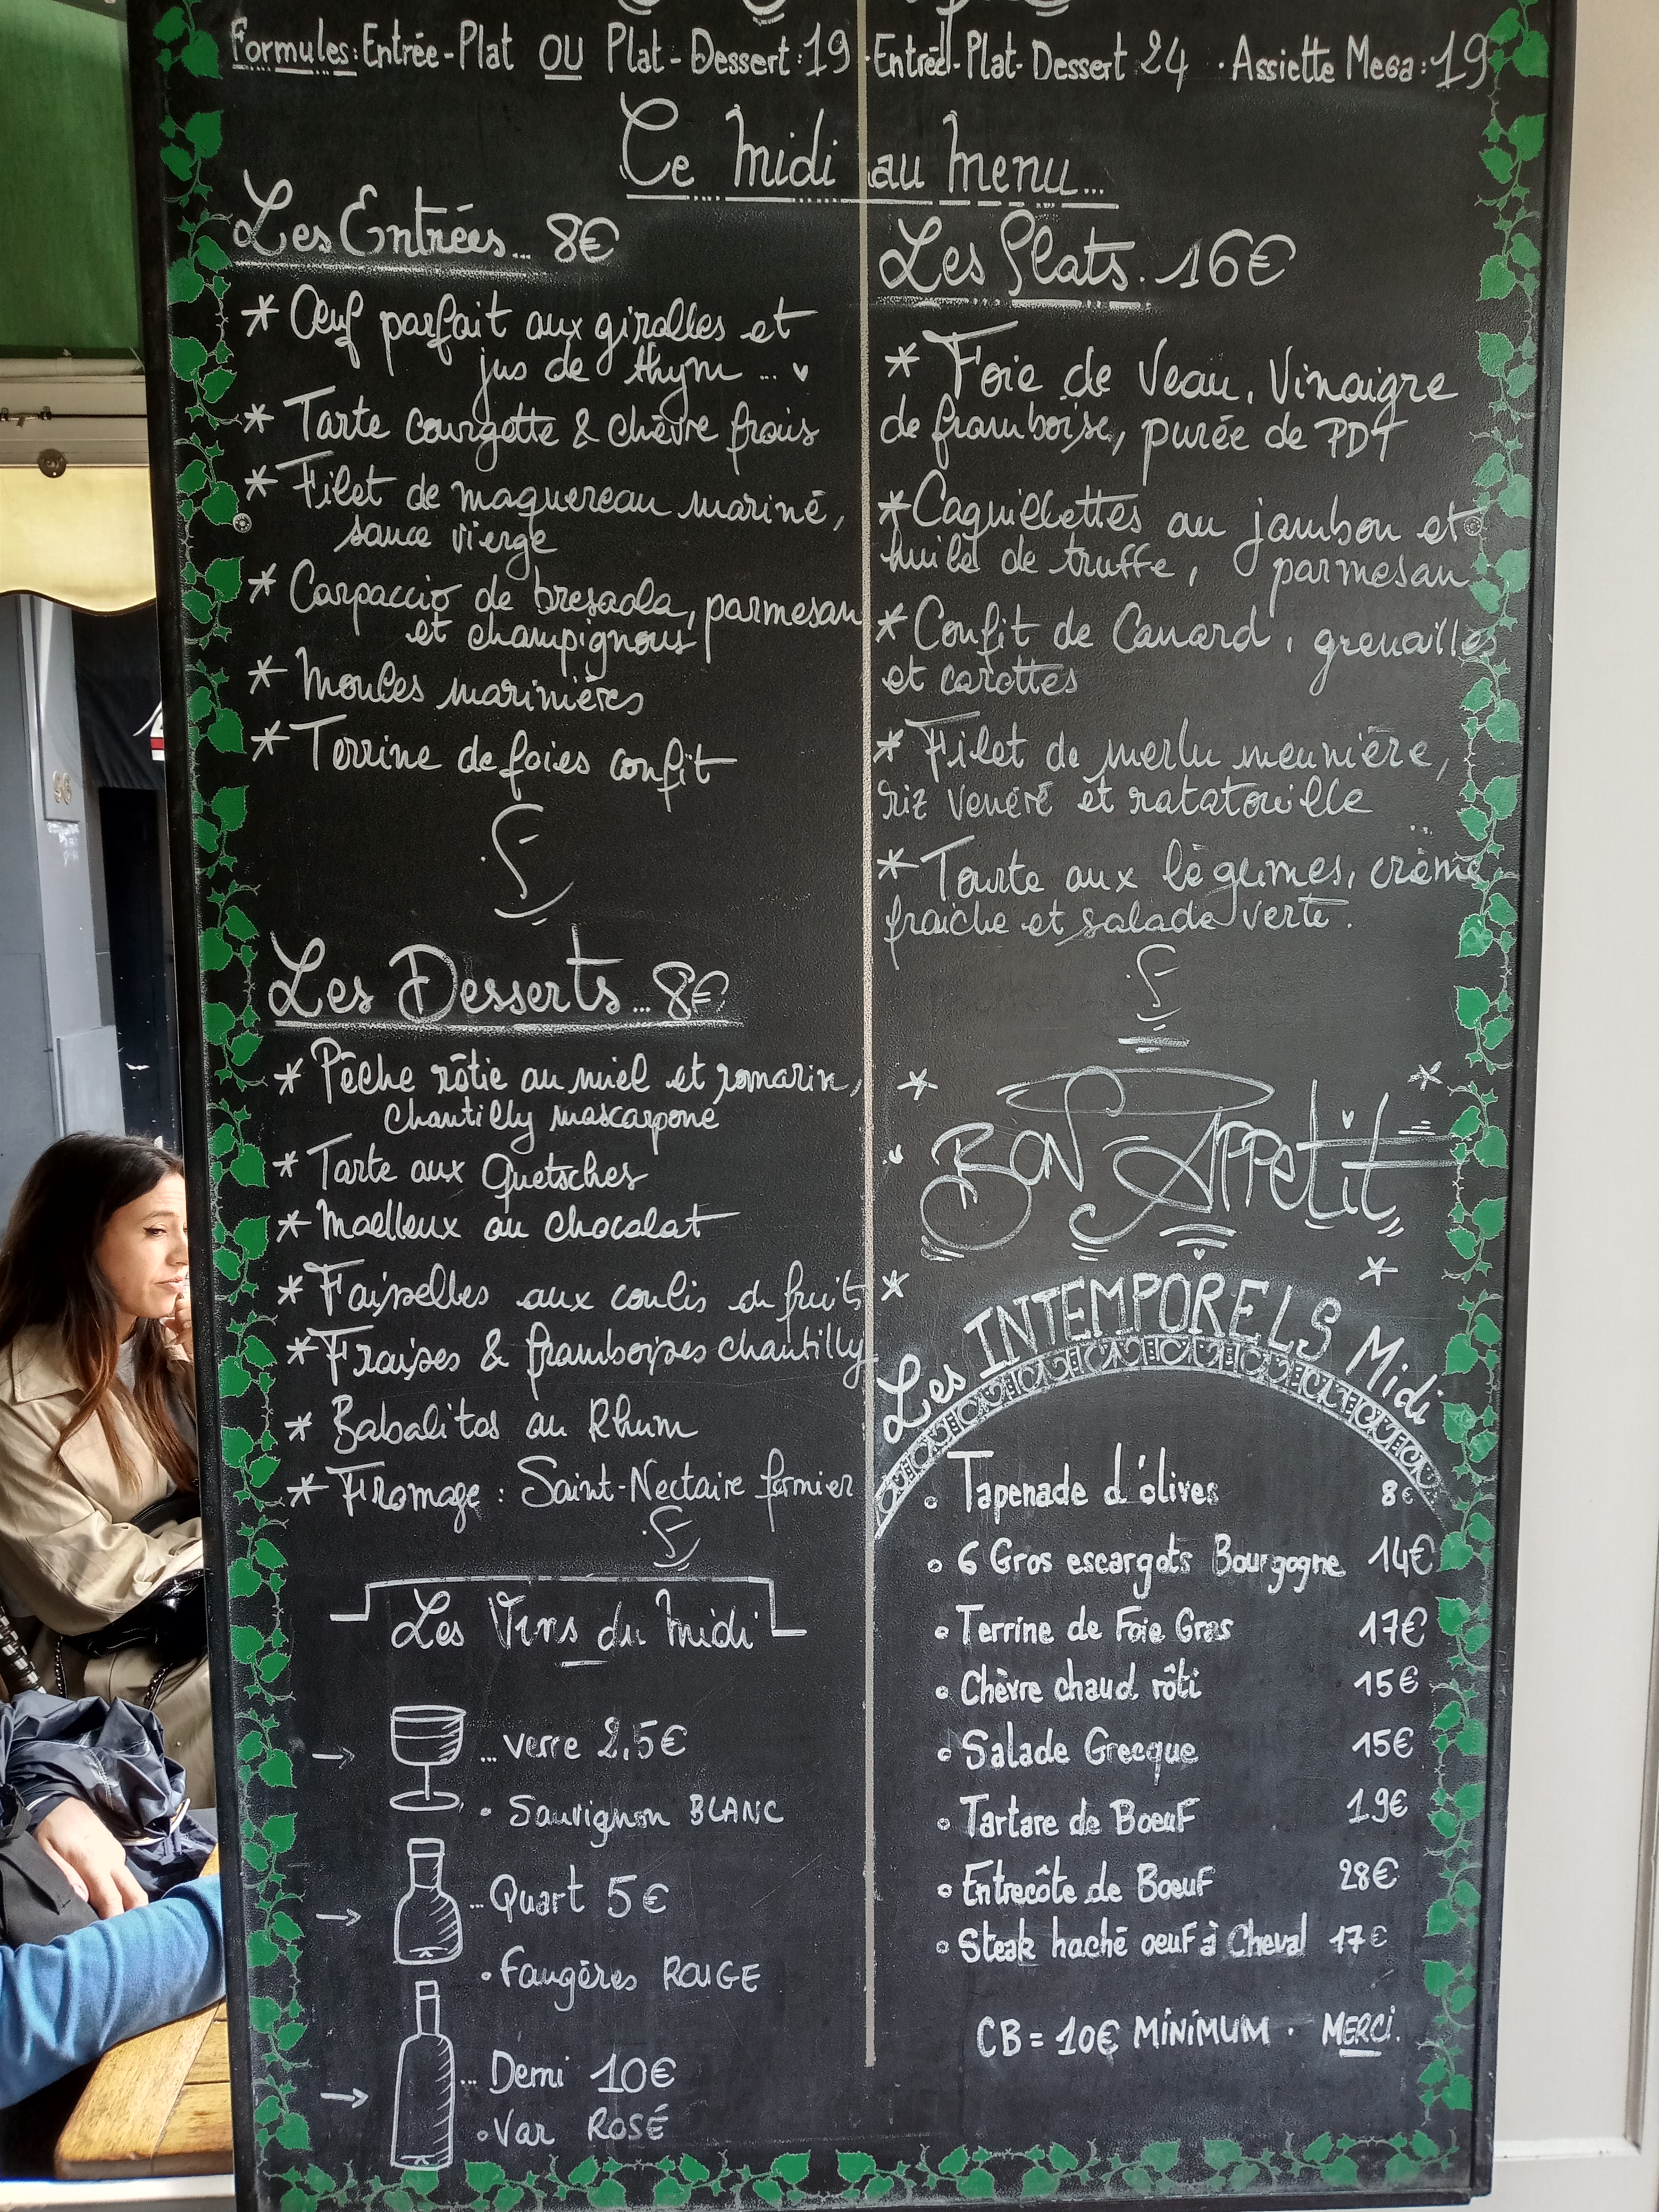 Formules: Entrée-Plat OU Plat-Dessert: 19 · Entrée-Plat-Dessert 24 · Assiette Mega: 19
Ce Midi au Menu...
Les Entrées... 8€
* Œuf parfait aux girolles et
jus de thym...
* Tarte courgette & chèvre frais
* Filet de maquereau mariné,
sauce vierge
* Carpaccio de bresaola, parmesan
et champignons
* Moules marinières
* Terrine de foies confit
Les Desserts... 8€
* Pêche rôtie au miel et romarin,
chantilly mascarpone
* Tarte aux Quetsches
* Moelleux au chocolat
* Faisselles aux coulis de fruits
* Fraises & framboises chantilly
* Babalitos au Rhum
* Fromage : Saint-Nectaire fermier
Les Vins du Midi
→ ... verre 2,5€
• Sauvignon BLANC
→ ... Quart 5€
• Faugères ROUGE
→ ... Demi 10€
• Var ROSÉ
Les Plats. 16€
* Foie de Veau, Vinaigre
de framboise, purée de PDT
* Caquillettes au jambon et
huile de truffe, parmesan
* Confit de Canard, grenailles
et carottes
* Filet de merlu meunière,
riz vénéré et ratatouille
* Tourte aux légumes, crème
fraîche et salade verte.
BON APPetit
Les INTEMPORELS Midi
• Tapenade d'olives 8€
• 6 Gros escargots Bourgogne 14€
• Terrine de Foie Gras 17€
• Chèvre chaud rôti 15€
• Salade Grecque 15€
• Tartare de Boeuf 19€
• Entrecôte de Boeuf 28€
• Steak haché oeuf à Cheval 17€
CB = 10€ MINIMUM · MERCI.
96